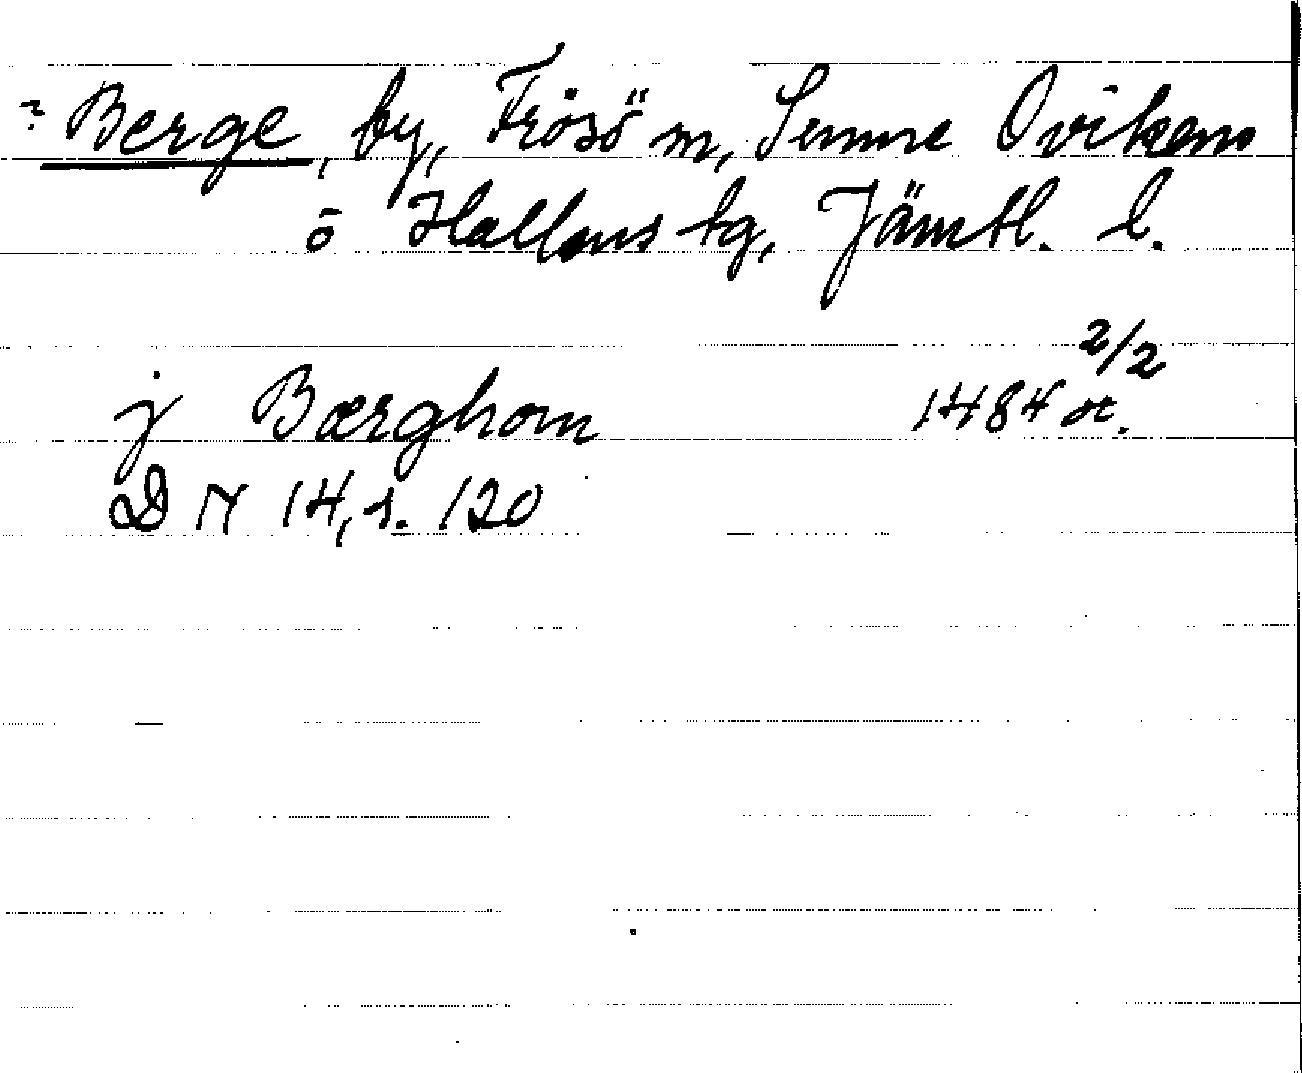 ? Berge, by, Frösö m, Sunne Ovikens
o Hallens tg, Jämtl. l.
2/2
j Bærghom 1484 or.
D N 14, s. 120